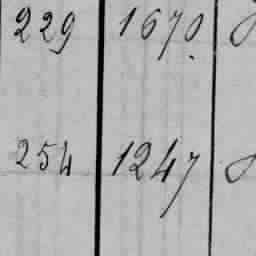 229 1670.
254 1247